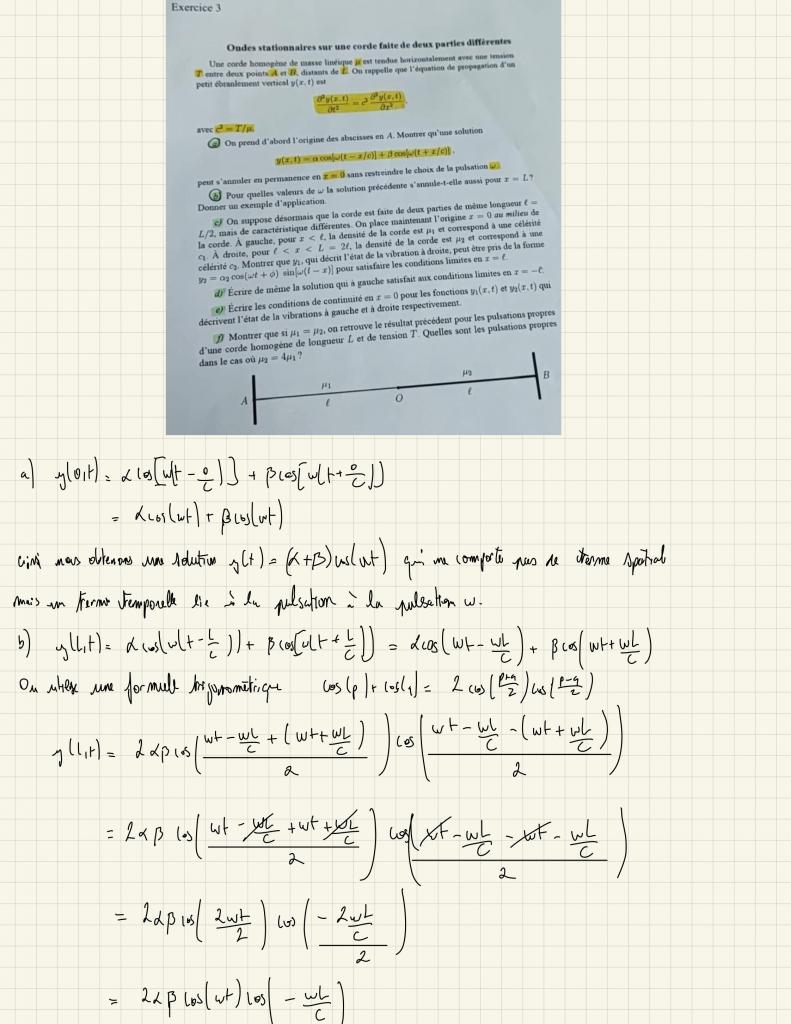 Exercice 3
Ondes stationnaires sur une corde faite de deux parties différentes
Une corde homogène de masse linéique μ est tendue horizontalement avec une tension
T entre deux points A et B, distants de L. On rappelle que l'équation de propagation d'un
petit ébranlement vertical y(x, t) est
∂²y(x, t)/∂t² = c² ∂²y(x, t)/∂x²,
avec c² = T/μ.
a) On prend d'abord l'origine des abscisses en A. Montrer qu'une solution
y(x, t) = α cos[ω(t − x/c)] + β cos[ω(t + x/c)],
peut s'annuler en permanence en x = 0 sans restreindre le choix de la pulsation ω.
b) Pour quelles valeurs de ω la solution précédente s'annule-t-elle aussi pour x = L?
Donner un exemple d'application.
c) On suppose désormais que la corde est faite de deux parties de même longueur ℓ =
L/2, mais de caractéristique différentes. On place maintenant l'origine x = 0 au milieu de
la corde. À gauche, pour x < ℓ, la densité de la corde est μ₁ et correspond à une célérité
c₁. À droite, pour ℓ < x < L = 2ℓ, la densité de la corde est μ₂ et correspond à une
célérité c₂. Montrer que y₁, qui décrit l'état de la vibration à droite, peut être pris de la forme
y₂ = α₂ cos(ωt + ϕ) sin[ω(ℓ − x)] pour satisfaire les conditions limites en x = ℓ.
d) Écrire de même la solution qui à gauche satisfait aux conditions limites en x = −ℓ.
e) Écrire les conditions de continuité en x = 0 pour les fonctions y₁(x, t) et y₂(x, t) qui
décrivent l'état de la vibrations à gauche et à droite respectivement.
f) Montrer que si μ₁ = μ₂, on retrouve le résultat précédent pour les pulsations propres
d'une corde homogène de longueur L et de tension T. Quelles sont les pulsations propres
dans le cas où μ₂ = 4μ₁?
A μ₁ ℓ O μ₂ ℓ B
a) y(0,t) = α cos[w(t − 0/c)] + β cos[w(t + 0/c)]
= α cos(wt) + β cos(wt)
ainsi nous obtenons une solution y(t) = (α+β) cos(wt) qui ne comporte pas de terme spatial
mais un terme temporelle lie à la pulsation à la pulsation w.
b) y(L,t) = α cos(w(t − L/c)) + β cos[w(t + L/c)] = α cos(wt − wL/c) + β cos(wt + wL/c)
On utilise une formule trigonométrique cos(p) + cos(q) = 2 cos((p+q)/2) cos((p−q)/2)
y(L,t) = 2αβ cos((wt − wL/c + (wt + wL/c))/2) cos((wt − wL/c − (wt + wL/c))/2)
= 2αβ cos((wt − wL/c + wt + wL/c)/2) cos((wt − wL/c − wt − wL/c)/2)
= 2αβ cos(2wt/2) cos((−2wL/c)/2)
= 2αβ cos(wt) cos(− wL/c)